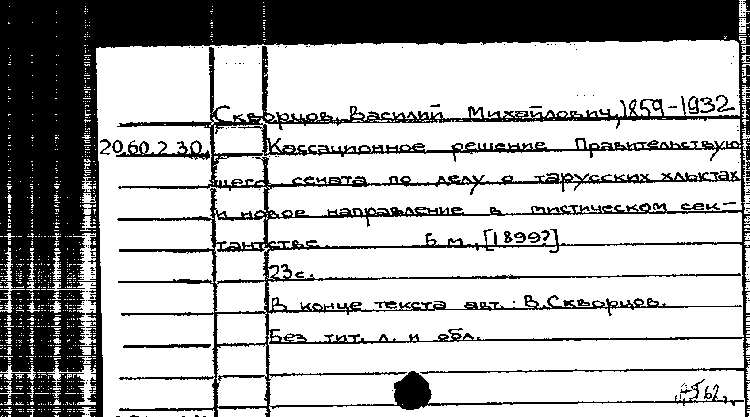 Скворцов, Василий Михайлович, 1859-1932
20.60.2.30. Кассационное решение Правительствую
щего сената по делу о тарусских хлыстах
и новое направление в мистическом сек-
тантстве. Б.м., [1899?].
23с.
В конце текста авт.: В.Скворцов.
Без тит. л. и обл.